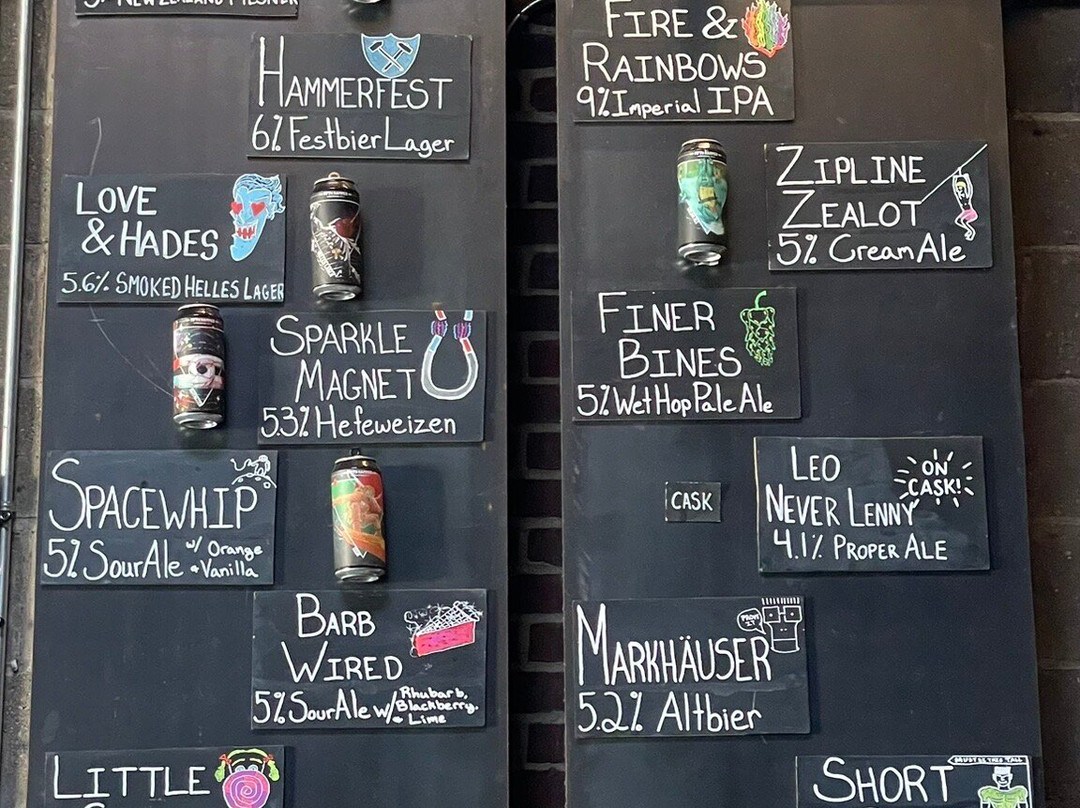 NEW ZEALAND PILSNER
HAMMERFEST
6% Festbier Lager
LOVE
& HADES
5.6% SMOKED HELLES LAGER
SPARKLE
MAGNET
5.3% Hefeweizen
SPACEWHIP
5% Sour Ale w/ Orange
& Vanilla
BARB
WIRED
5% Sour Ale w/ Rhubarb,
Blackberry,
& Lime
LITTLE
FIRE &
RAINBOWS
9% Imperial IPA
ZIPLINE
ZEALOT
5% Cream Ale
FINER
BINES
5% Wet Hop Pale Ale
CASK
LEO
NEVER LENNY
ON
CASK!
4.1% PROPER ALE
MARKHÄUSER
5.2% Altbier
SHORT